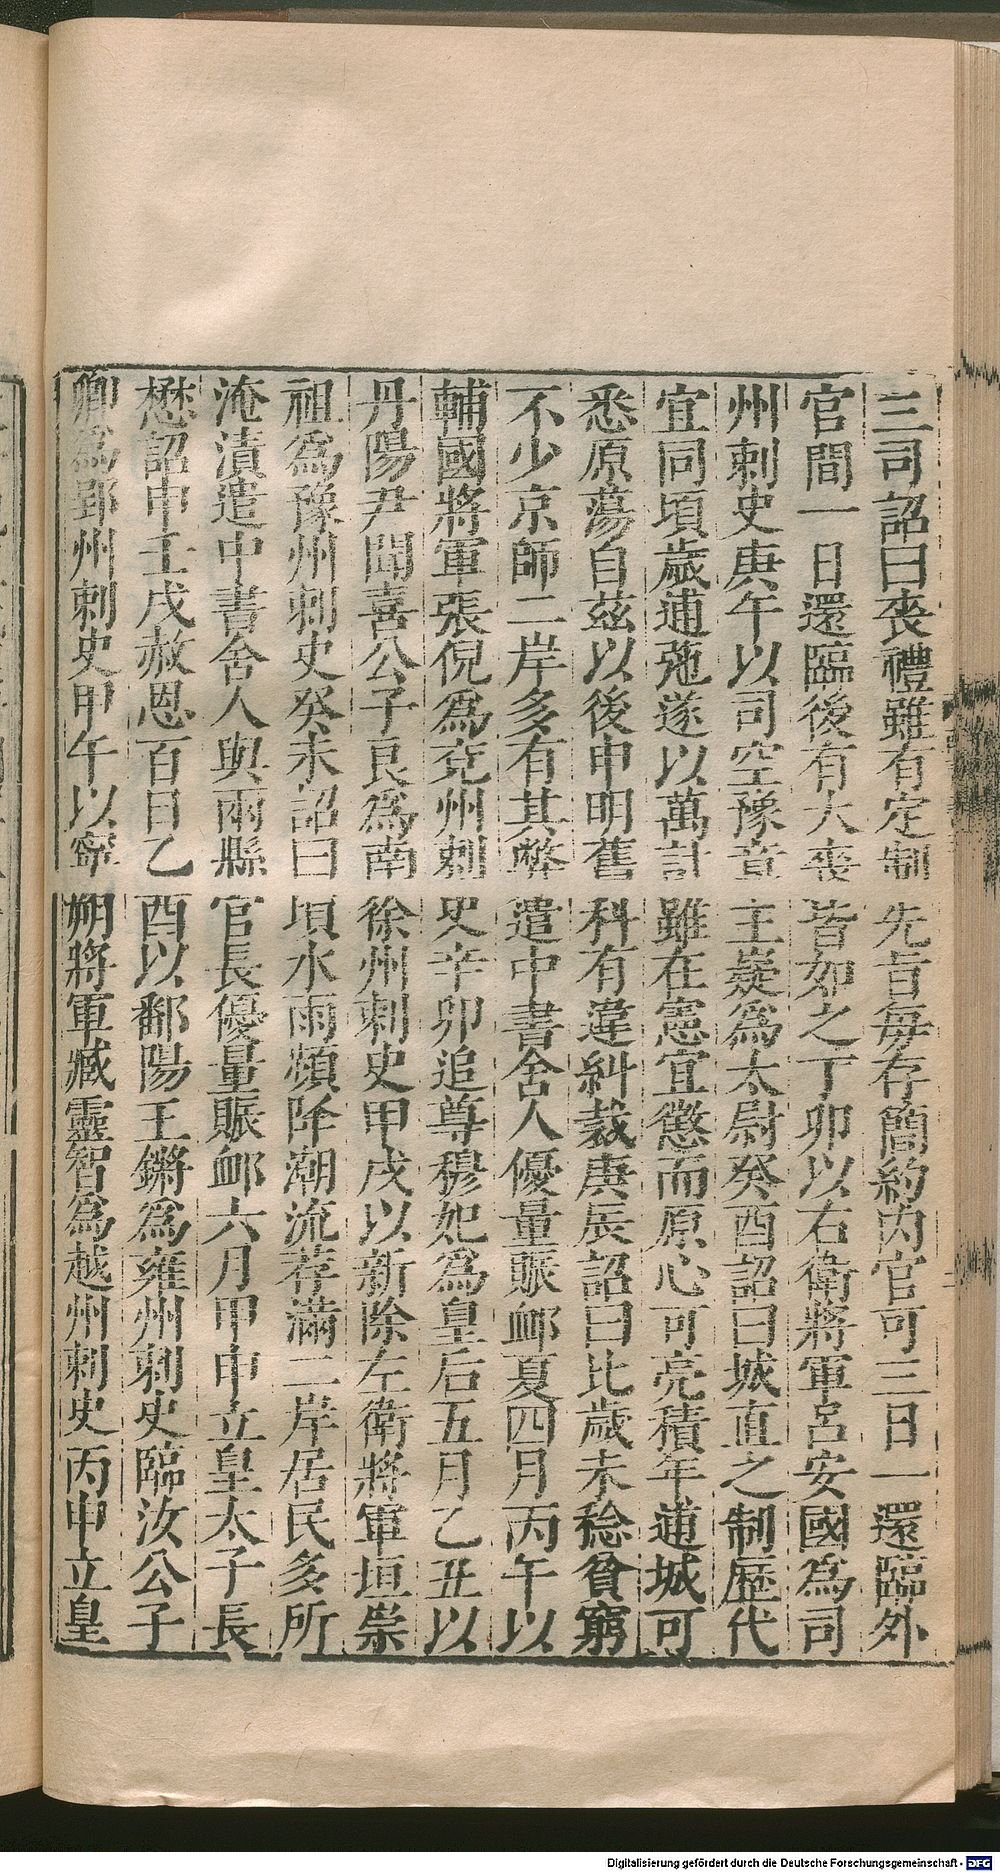 三司詔曰喪禮雖有定制先旨每存簡約內官可三日一還臨外
官間一日還臨後有大喪皆如之丁卯以右衛將軍呂安國爲司
州刺史庚午以司空豫章王嶷爲太尉癸酉詔曰城直之制歷代
宜同頃歲逋弛遂以萬計雖在憲宜懲而原心可亮積年逋城可
悉原蕩自茲以後申明舊科有違糾裁庚辰詔曰比歲未稔貧窮
不少京師二岸多有其弊遣中書舍人優量賑卹夏四月丙午以
輔國將軍張倪爲兗州刺史辛卯追尊穆妃爲皇后五月乙丑以
丹陽尹聞喜公子良爲南徐州刺史甲戌以新除左衛將軍垣崇
祖爲豫州刺史癸未詔曰頃水雨頻降潮流荐滿二岸居民多所
淹漬遣中書舍人與兩縣官長優量賑卹六月甲申立皇太子長
懋詔申壬戌赦恩百日乙酉以鄱陽王鏘爲雍州刺史臨汝公子
卿爲郢州刺史甲午以寧朔將軍臧靈智爲越州刺史丙申立皇
Digitalisierung gefördert durch die Deutsche Forschungsgemeinschaft - DFG